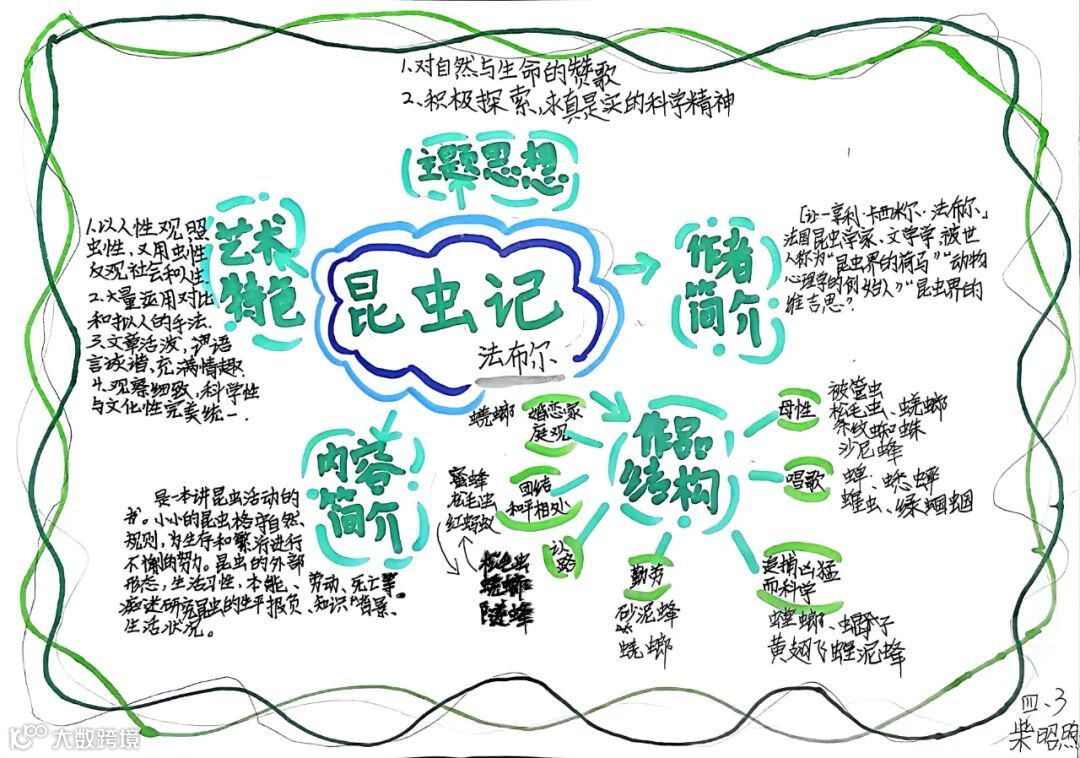 1.对自然与生命的赞歌
2.积极探索,求真是实的科学精神
主题思想
艺术
特色
1.以人性观照
虫性,又用虫性
反观社会和人生
2.大量运用对比
和拟人的手法.
3.文章活波,
言诙谐、充满情趣
4.观察细致,科学性
与文化性完美统一.
昆虫记
法布尔
作者
简介
亨利·卡西米尔·法布尔
法国昆虫学家、文学学,被世
人称为"昆虫界的荷马""动物
心理学的创始人""昆虫界的
维吉思"
内容
简介
是一本讲昆虫活动的
书。小小的昆虫恪守自然
规则,为生存和繁衍进行
不懈的努力。昆虫的外部
形态,生活习性,本能、劳动、死亡等。
研究昆虫的生平报负、知识背景、
生活状况。
作品
结构
蜣螂
婚恋家
庭观
蜜蜂
松毛虫
红蚂蚁
团结
和平相处
认路
松毛虫
蜣螂
蜂
勤劳
砂泥蜂
蜣螂
追捕凶猛
而科学
螳螂、蝎子
黄翅飞蝗泥蜂
母性
被管虫
松毛虫、蜣螂
条纹蜘蛛
沙尼蜂
唱歌
蝉、蟋蟀
蝗虫、绿蝈蝈
四.3
柴昭煦
100 大数跨境